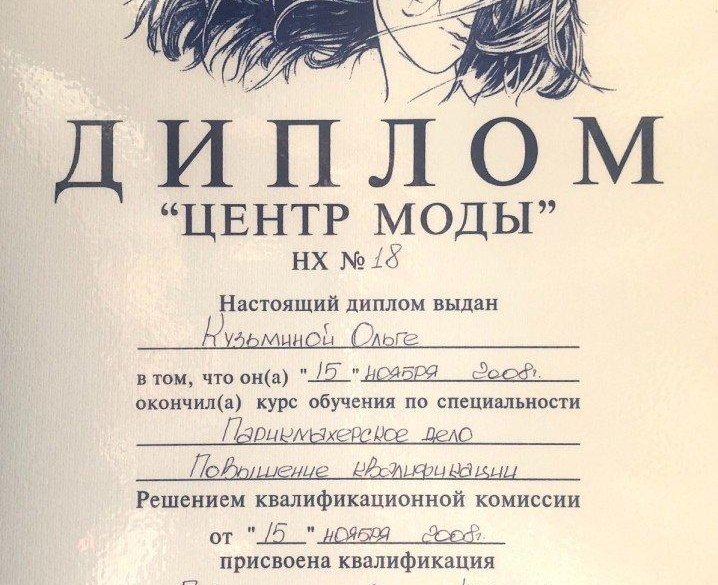 ДИПЛОМ
“ЦЕНТР МОДЫ”
НХ № 18
Настоящий диплом выдан
Кузьминой Ольге
в том, что он(а) "15" ноября 2008г.
окончил(а) курс обучения по специальности
Парикмахерское дело
Повышение квалификации
Решением квалификационной комиссии
от "15" ноября 2008г.
присвоена квалификация